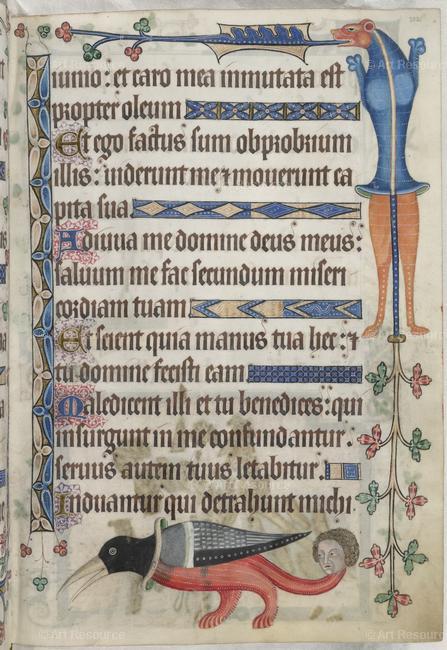 iunio: et caro mea inmutata est
propter oleum
Et ego factus sum obprobrium
illis: uiderunt me ⁊ mouerunt ca
pita sua.
Adiuua me domine deus meus:
saluum me fac secundum miseri
cordiam tuam
Et scient quia manus tua hec: ⁊
tu domine fecisti eam
Maledicent illi et tu benedices: qui
insurgunt in me confundantur.
seruus autem tuus letabitur.
Induantur qui detrahunt michi
© Art Resource
© Art Resource